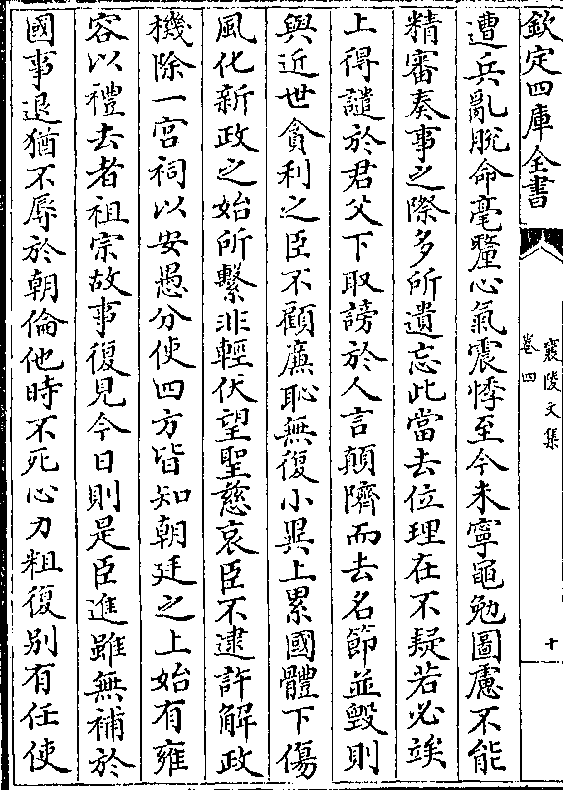 欽定四庫全書
襄陵文集
卷四
十
遭兵亂脫命毫釐心氣震悸至今未寧黽勉圖慮不能
精審奏事之際多所遺忘此當去位理在不疑若必竢
上得譴於君父下取謗於人言顛隮而去名節並毀則
與近世貪利之臣不顧廉恥無復小異上累國體下傷
風化新政之始所繫非輕伏望聖慈哀臣不逮許解政
機除一宫祠以安愚分使四方皆知朝廷之上始有雍
容以禮去者祖宗故事復見今日則是臣進雖無補於
國事退猶不辱於朝倫他時不死心力粗復别有任使